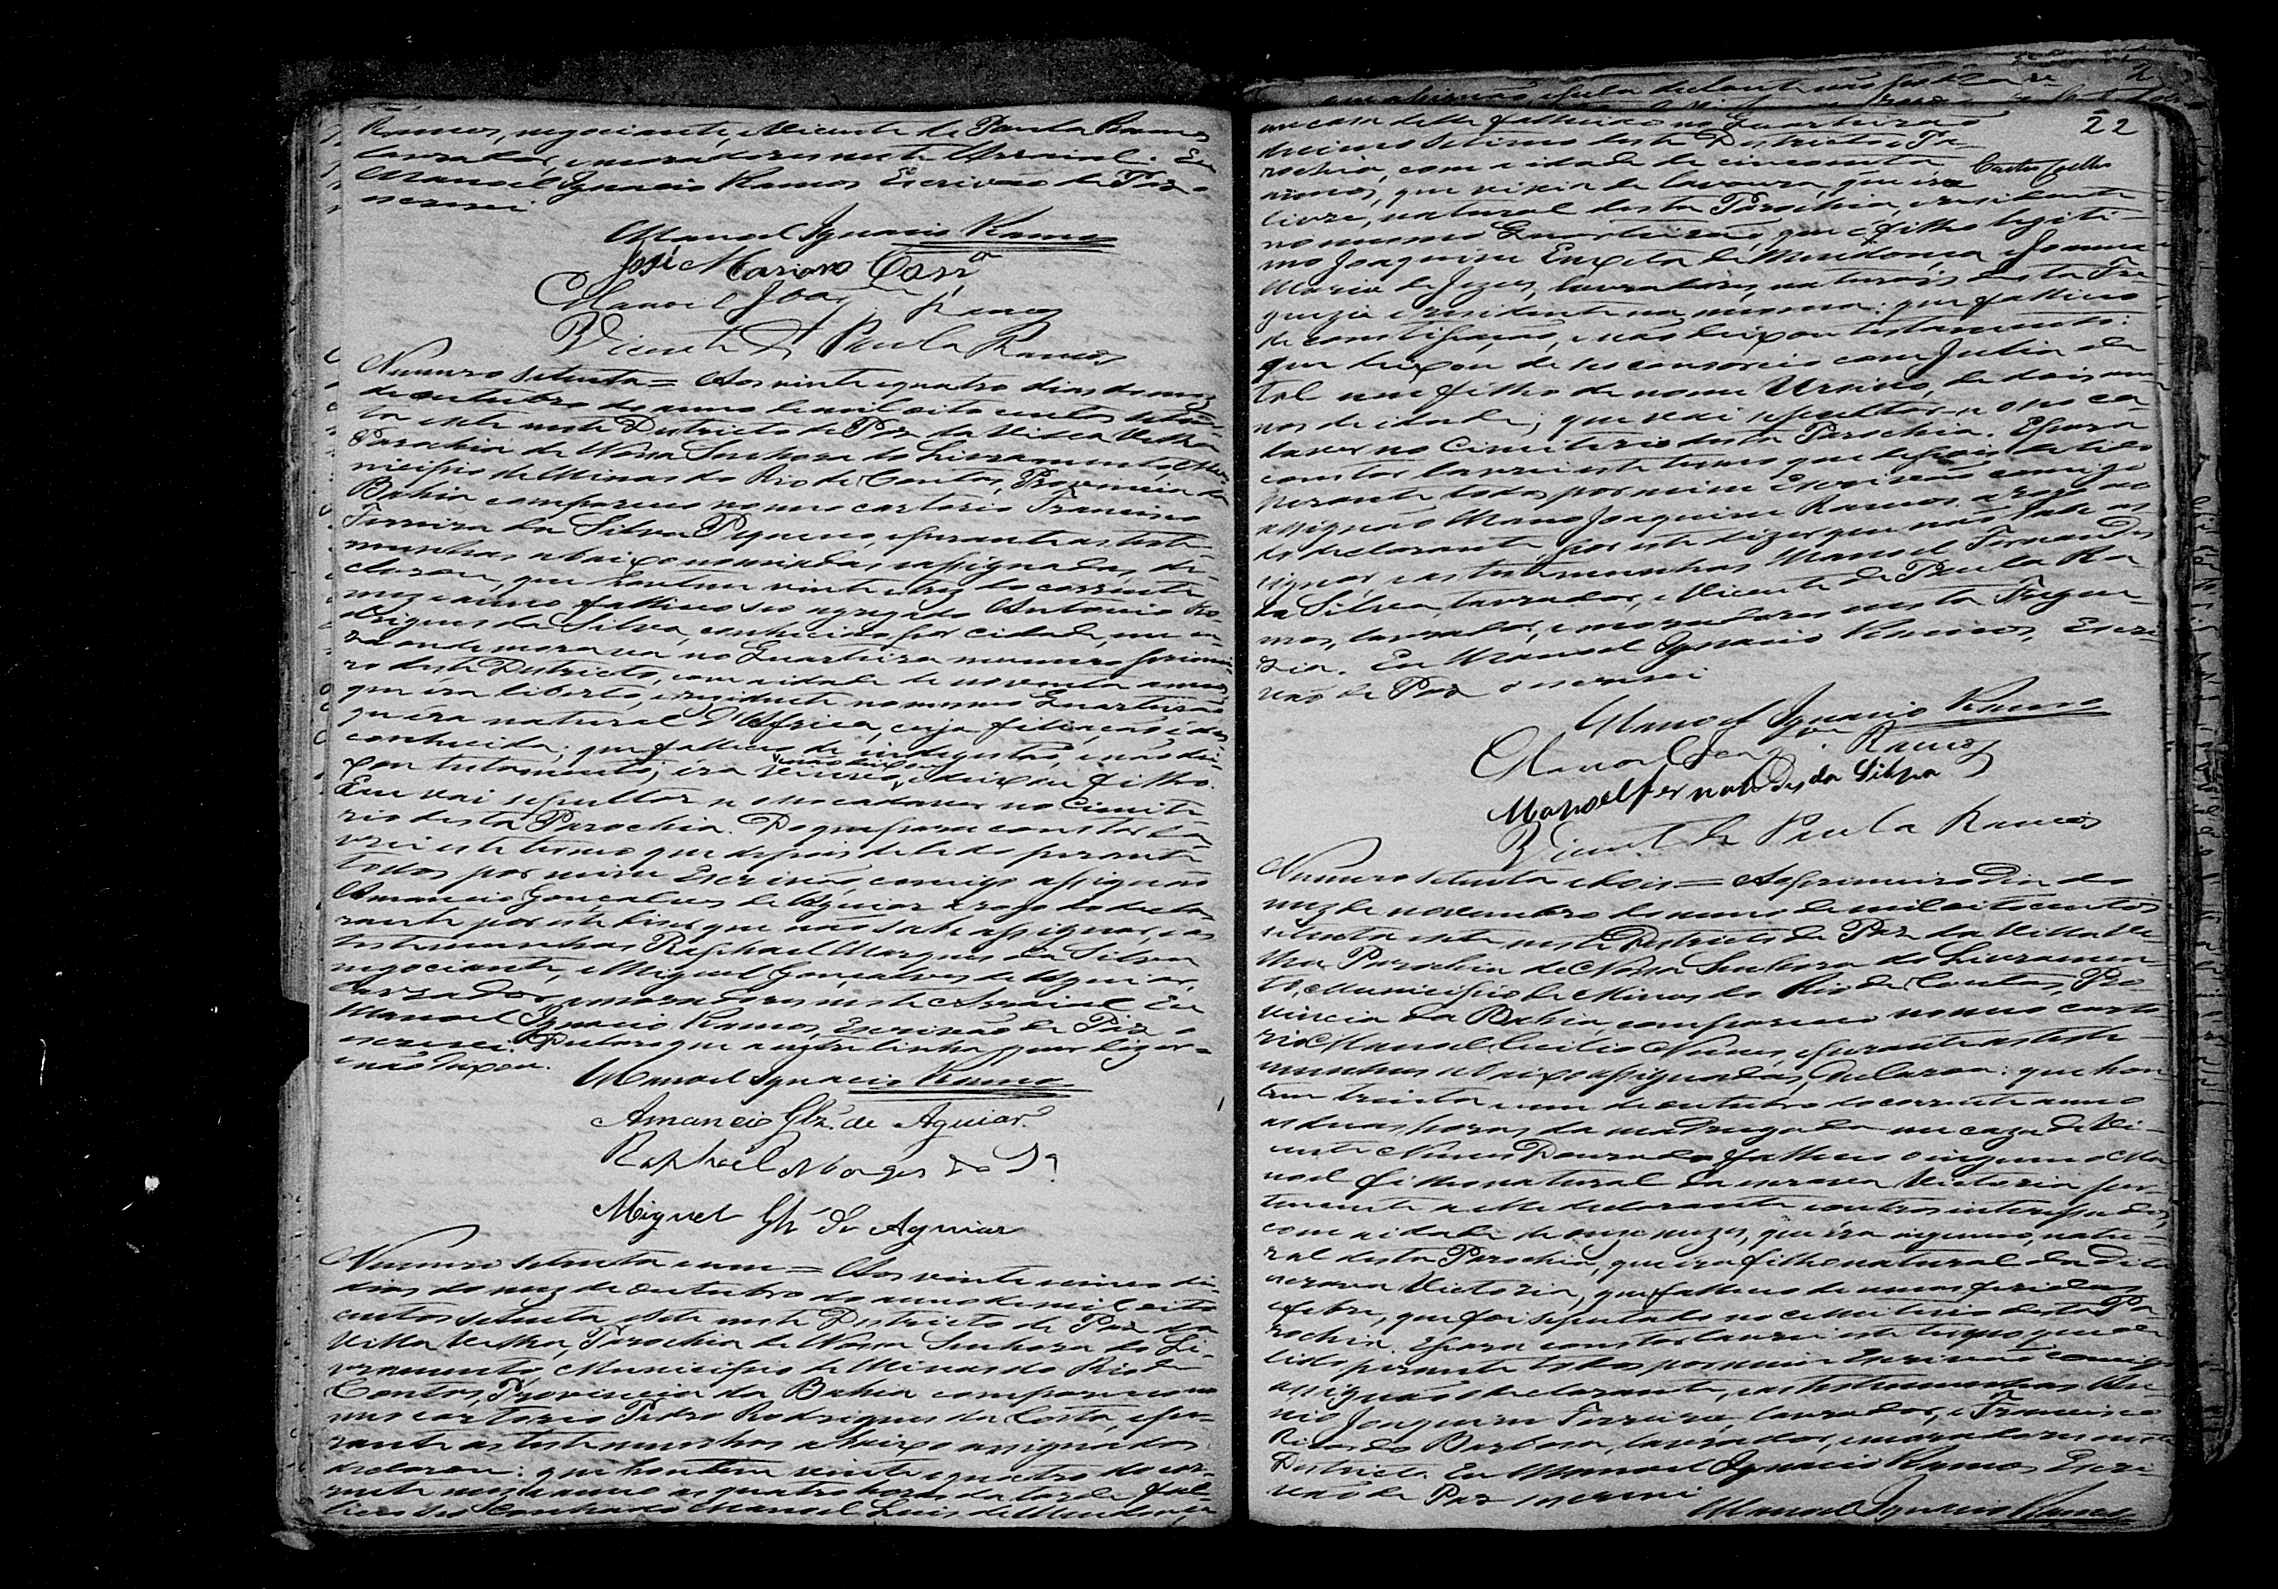 Ramos, negociante, e Vicente de Paula Ramos
lavrador, e moradores neste Arraial. Eu
Manoel Ignacio Ramos Escrivão de Paz o
escrevi
Manoel Ignacio Ramos
José Mariano Corrª
Manoel Joaqᵐ Ramos
Vicente de Paula Ramos
Numero setenta = Aos vinte e quatro dias do mez
de outubro do anno de mil oito centos seten-
ta e sete neste Districto de Paz da Villa Velha
Parochia de Nossa Senhora do Livramento, Mu-
nicipio de Minas do Rio de Contas, Provincia da
Bahia compareceo no meo cartorio Francisco
Ferreira da Silva Pequeno, e perante as teste-
munhas abaixo nomeiadas, e assignadas, de-
clarou, que hontem vinte e trez do corrente
mez e anno falleceo seo agregado Antonio Ro-
drigues da Silva, conhecido por cidade, em ca-
za onde morava no Quarteirão numero primei-
ro deste Districto, com a idade de noventa annos,
que era liberto, e rezidente no mesmo Quarteirão
que era natural d'Africa, cuja filiação é des-
conhecida; que falleceo de indigestão, e não dei-
xou testamento; era e não deixou filhos.
Que vai sepultar-se o seo cadaver no Cimite-
rio desta Parochia. Do que para constar la-
vrei este termo que depois de lido perante
todos por mim Escrivão, comigo assignão
Amancio Gonçalves de Aguiar a rogo do decla-
rante por este dizer que não sabe assignar, e as
testemunhas Raphael Marques da Silva
negociante, e Miguel Gonçalves de Aguiar,
lavrador, e moradores neste Arraial. Eu
Manoel Ignacio Ramos, Escrivão de Paz o
escrevi. Declaro que a entrelinha quer dizer =
e não deixou.
Manoel Ignacio Ramos
Amancio Glz. de Aguiar.
Raphael Marques da Sª
Miguel Glz de Aguiar
Numero setenta e um = Aos vinte e cinco di-
dias do mez de outubro do anno de mil oito
centos setenta e sete neste Districto de Paz da
Villa Velha, Parochia de Nossa Senhora do Li-
vramento, Municipio de Minas do Rio de
Contas, Provincia da Bahia compareceo no
meo cartorio Pedro Rodrigues da Costa, e pe-
rante as testemunhas abaixo assignadas
declarou: que hontem vinte e quatro do cor-
rente mez e anno as quatro horas da tarde fal-
leceo seo cunhado Manoel Luis de Mendonça,
22
em casa delle fallecido no Quarteirão
decimo setimo deste Districto e Pa-
rochia, com a idade de cincoenta
annos, que vivia de lavoura, que era
livre, natural desta Parochia, e residente
no mesmo Quarteirão, que é filho legiti-
mo Joaquim de Mendonça e Joanna
Maria de Jezus, lavradores, naturais desta Fre-
guezia e residente na mesma: que falleceo
de constipação, e não deixou testamento:
que deixou de seo consorcio com Julia de
tal um filho de nome Ursino, de dois an-
nos de idade; que vai sepultar-se o seo ca-
daver no Cimiterio desta Parochia. E para
constar lavrei este termo que depois de lido
perante todos por mim Escrivão comigo
assignão Manoel Joaquim Ramos a rogo
do declarante, por este dizer que não sabe as-
signar e as testemunhas Manoel Fernandes
da Silva, lavrador, e Vicente de Paula Ra-
mos, lavrador, e moradores nesta Fregue-
zia. Eu Manoel Ignacio Ramos, Escri-
vão de Paz o escrevi
Manoel Ignacio Ramos
Manoel Joaqᵐ Ramos
Manoel Fernandes da Silva
Vicente de Paula Ramos
Numero setenta e dois = Ao primeiro dia do
mez de novembro do anno de mil oito centos
setenta e sete neste Districto de Paz da Villa Ve-
lha Parochia de Nossa Senhora do Livramen-
to, Municipio de Minas do Rio de Contas, Pro-
vincia da Bahia, compareceo no meo carto-
rio Manoel Cecilio Nunes, e perante as teste-
munhas abaixo assignadas, declarou: que hon-
tem trinta e um de outubro do corrente anno
as duas horas da madrugada em caza de Vi-
cente Nunes Dourado falleceo o ingenuo Ma-
noel filho natural da escrava Victoria per-
tencente a elle declarante e outros interessados,
com a idade de onze mezes, que éra ingenuo, natu-
ral desta Parochia, que era filho natural da dita
escrava Victoria, que falleceo de umas feridas
e febre, que foi sepultado no cemiterio desta Pa-
rochia. E para constar lavrei este termo que de
lido perante todos por mim Escrivão comigo
assignão o declarante, e as testemunhas
Joaquim Ferreira, lavrador, e Francisco
Ricardo Barbosa, lavrador, e moradores neste
Districto. Eu Manoel Ignacio Ramos Escri-
vão de Paz o escrevi
Manoel Ignacio Ramos